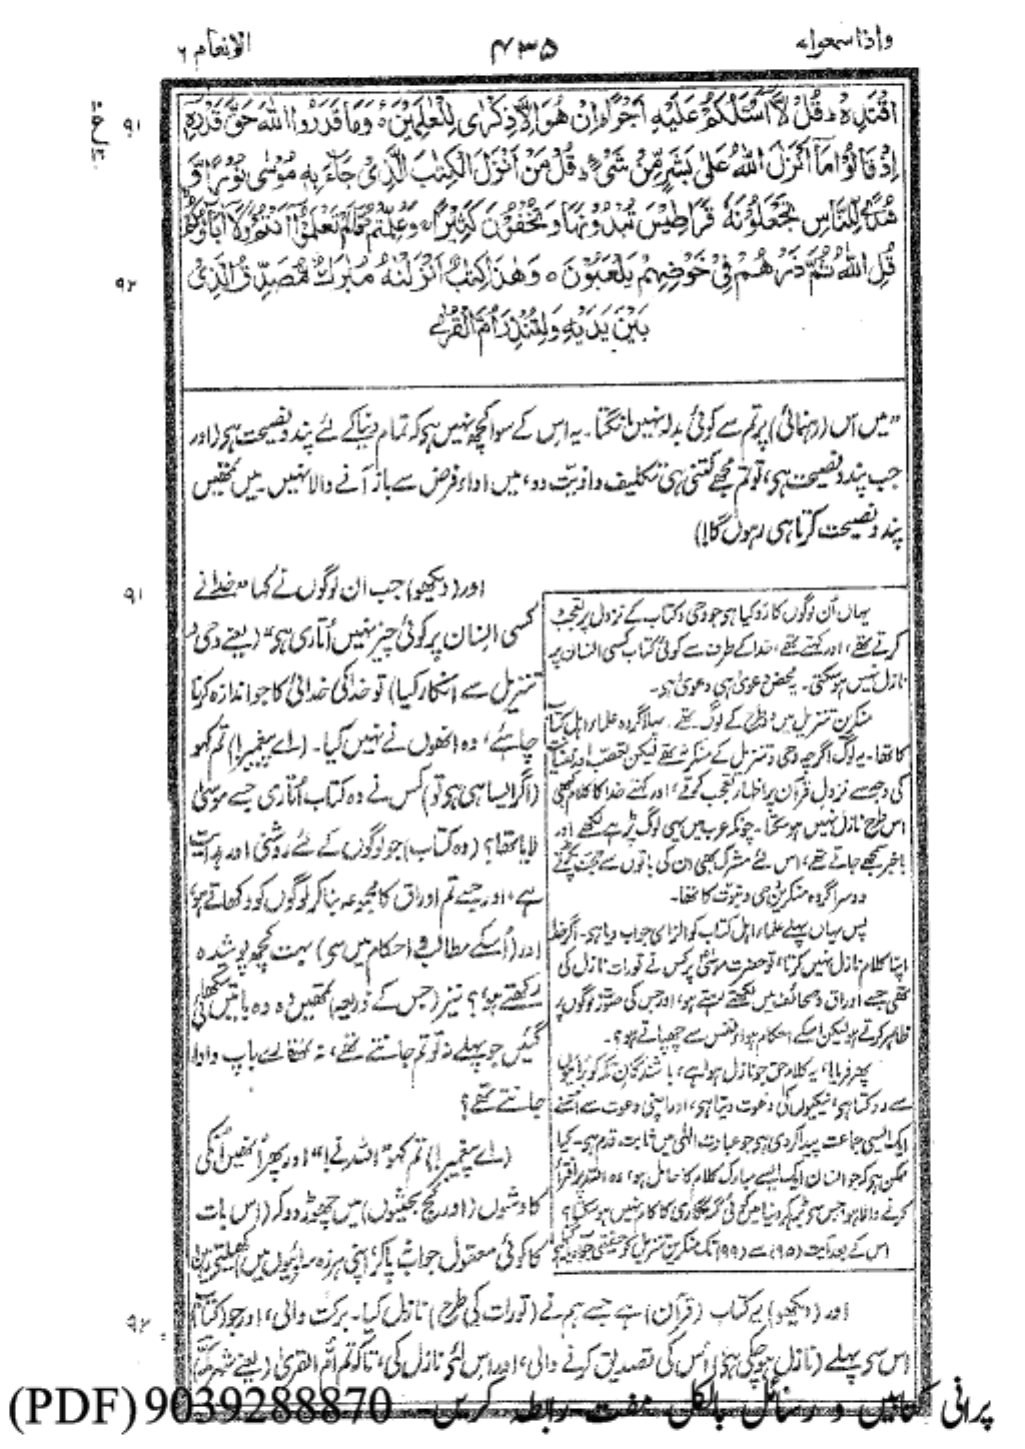 واذا سمعوا ۷
۴۳۵
الانعام ۶
اقْتَدِهْ ۭ قُلْ لَّآ اَسْـَٔلُكُمْ عَلَيْهِ اَجْرًا ۭ اِنْ هُوَ اِلَّا ذِكْرٰى لِلْعٰلَمِيْنَ ۰ وَمَا قَدَرُوا اللّٰهَ حَقَّ قَدْرِهٖٓ
۹۱
اِذْ قَالُوْا مَآ اَنْزَلَ اللّٰهُ عَلٰى بَشَرٍ مِّنْ شَيْءٍ ۭ قُلْ مَنْ اَنْزَلَ الْكِتٰبَ الَّذِيْ جَاۗءَ بِهٖ مُوْسٰى نُوْرًا وَّ
هُدًى لِّلنَّاسِ تَجْعَلُوْنَهٗ قَرَاطِيْسَ تُبْدُوْنَهَا وَتُخْفُوْنَ كَثِيْرًا ۚ وَعُلِّمْتُمْ مَّا لَمْ تَعْلَمُوْٓا اَنْتُمْ وَلَآ اٰبَاۗؤُكُمْ
قُلِ اللّٰهُ ثُمَّ ذَرْهُمْ فِيْ خَوْضِهِمْ يَلْعَبُوْنَ ۰ وَهٰذَا كِتٰبٌ اَنْزَلْنٰهُ مُبٰرَكٌ مُّصَدِّقُ الَّذِيْ
۹۲
بَيْنَ يَدَيْهِ وَلِتُنْذِرَ اُمَّ الْقُرٰى
"میں اس (رہنمائی) پر تم سے کوئی بدلہ نہیں مانگتا۔ یہ اس کے سوا کچھ نہیں ہو کہ تمام دنیا کے لئے پند و نصیحت ہو (اور
جب پند و نصیحت ہی، تو تم مجھے کتنی ہی تکلیف و اذیت دو، میں اداء فرض سے باز آنے والا نہیں۔ میں تمھیں
پند و نصیحت کرتا ہی رہوں گا!)
اور (دیکھو) جب ان لوگوں نے کہا "خدا نے
۹۱
کسی انسان پر کوئی چیز نہیں اُتاری ہو" (یعنے وحی و
تنزیل سے انکار کیا) تو خدا کی خدائی کا جو اندازہ کرنا
چاہئے، وہ انھوں نے نہیں کیا۔ (اے پیغمبر!) تم کہو
(اگر ایسا ہی ہو تو) کس نے وہ کتاب اُتاری جسے موسیٰ
لایا تھا؟ (وہ کتاب) جو لوگوں کے لئے روشنی اور ہدایت
ہے، اور جسے تم اوراق کا مجموعہ بنا کر لوگوں کو دکھاتے ہو
اور (اُسکے مطالب و احکام میں سے) بہت کچھ پوشیدہ
رکھتے ہو؟ نیز (جس کے ذریعہ) تمھیں وہ وہ باتیں سکھلائی
گئیں جو پہلے نہ تو تم جانتے تھے، نہ تمھارے باپ دادا
جانتے تھے؟
(اے پیغمبر!) تم کہو "اللہ نے!" اور پھر اُنھیں اُن کی
کاوشوں (اور کج بحثیوں) میں چھوڑ دو کہ (اس بات
کا کوئی معقول جواب نہ پا کر) اپنی ہرزہ سرائیوں میں کھیلتے رہیں
یہاں اُن لوگوں کا رد کیا ہو جو وحی و کتاب کے نزول پر تعجب
کرتے تھے، اور کہتے تھے، خدا کے طرف سے کوئی کتاب کسی انسان پر
نازل نہیں ہو سکتی۔ یہ محض دعویٰ ہی دعویٰ ہو۔
منکرین تنزیل میں دو طرح کے لوگ تھے۔ پہلا گروہ علماء اہل کتاب
کا تھا۔ یہ لوگ اگرچہ وحی و تنزیل کے منکر نہ تھے لیکن تعصب اور
کی وجہ سے نزول قرآن پر اظہار تعجب کرتے، اور کہتے خدا کا کلام کبھی
اس طرح نازل نہیں ہو سکتا۔ چونکہ عرب میں یہی لوگ پڑھے لکھے اور
باخبر سمجھے جاتے تھے، اس لئے مشرک بھی ان کی باتوں سے حجت پکڑتے
دوسرا گروہ منکرین وحی و نبوت کا تھا۔
پس یہاں پہلے علماء اہل کتاب کو الزامی جواب دیا ہو۔ اگر خدا
اپنا کلام نازل نہیں کرتا، تو حضرت موسیٰ پر کس نے تورات نازل کی
تھی جسے اوراق و صحائف میں لکھتے رہتے ہو، اور جس کی لوگوں پر
ظاہر کرتے ہو لیکن اسکے احکام ہواء نفس سے چھپاتے ہو؟۔
پھر فرمایا، یہ کلام حق جو نازل ہوا ہے، باشندگان مکہ کو برائیوں
سے روکتا ہی، نیکیوں کی دعوت دیتا ہو، اور اپنی دعوت سے اسنے
ایک ایسی جماعت پیدا کردی ہو جو عبادت الٰہی میں ثابت قدم ہو۔ کیا
ممکن ہو کہ جو انسان ایک ایسے مبارک کلام کا حامل ہو، وہ اللہ پر افترا
کرنے والا ہو جس سے بڑھ کر دنیا میں کوئی گنہگاری کا کام نہیں ہو سکتا؟
اس کے بعد آیت (۹۵) سے (۹۹) تک منکرین تنزیل کو حقیقی جواب
اور (دیکھو) یہ کتاب (قرآن) ہے جسے ہم نے (تورات کی طرح) نازل کیا۔ برکت والی، اور جو کتاب
۹۲
اس سے پہلے (نازل ہو چکی ہو) اُس کی تصدیق کرنے والی، اور اس لئے نازل کی، تاکہ تم اُم القریٰ (یعنے شہر مکہ)
پرانی کتابیں و رسائل بالکل مفت رابطہ کریں (PDF) 9039288870